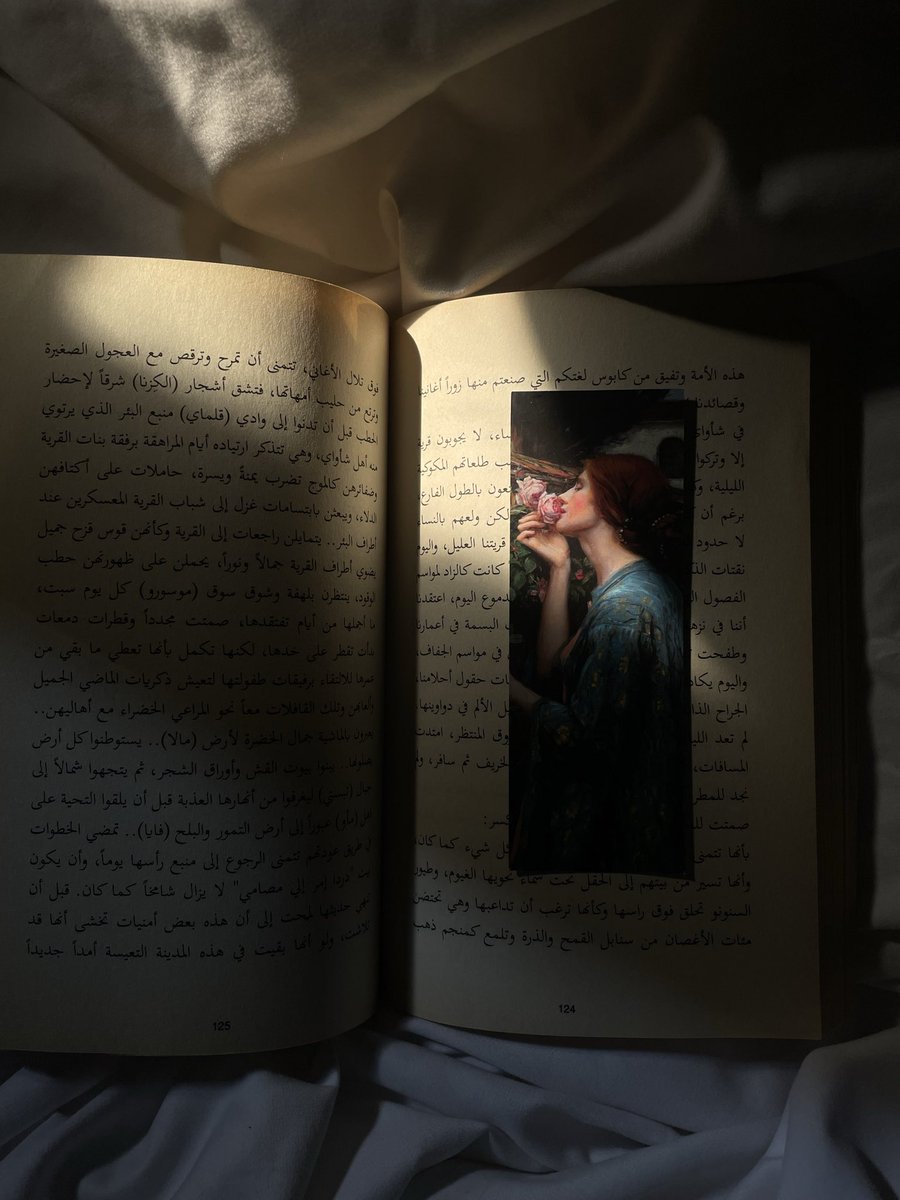 هذه الأمة وتفيق من كابوس لغتكم التي صنعتم منها زوراً أغانينا
وقصائدنا
في شأواي ساء، لا يجوبون قرية
إلا وتركوا ب طلعاتهم المكوكية
الليلية، عون بالطول الفارع،
برغم أن لكن ولعهم بالنساء
لا حدود قريتنا العليل، واليوم
نقتات الذ كانت كالزاد لمواسم
الفصول دموع اليوم، اعتقدنا
أننا في نزه البسمة في أعمارنا
وطفحت في مواسم الجفاف،
واليوم يكاد ات حقول أحلامنا،
الجراح الذا ل الألم في دواوينها،
لم تعد الليا وق المنتظر، امتدت
المسافات، لخريف ثم سافر، ولم
نجد للمطر
صمتت لل سر:
بأنها تتمنى كل شيء كما كان،
وأنها تسير من بيتهم إلى الحقل تحت سماء تحويها الغيوم، وطيور
السنونو تحلق فوق راسها وكأنها ترغب أن تداعبها وهي تحتضن
مئات الأغصان من سنابل القمح والذرة وتلمع كمنجم ذهب
124
فوق تلال الأغاني، تتمنى أن تمرح وترقص مع العجول الصغيرة
وترتع من حليب أمهاتها، فتشق أشجار (الكزنا) شرقاً لإحضار
الحطب قبل أن تدنوا إلى وادي (قلماي) منبع البئر الذي يرتوي
منه أهل شأواي، وهي تتذكر ارتياده أيام المراهقة برفقة بنات القرية
وضفائرهن كالموج تضرب يمنةً ويسرة، حاملات على أكتافهن
الدلاء، ويبعثن بابتسامات غزل إلى شباب القرية المعسكرين عند
أطراف البئر.. يتمايلن راجعات إلى القرية وكأنهن قوس قزح جميل
يضوي أطراف القرية جمالاً ونوراً، يحملن على ظهورتهن حطب
الوقود، ينتظرن بلهفة وشوق سوق (موسورو) كل يوم سبت،
ما أجملها من أيام تفتقدها، صمتت مجدداً وقطرات دمعات
بدأت تقطر على خدها، لكنها تكمل بأنها تعطي ما بقي من
عمرها للالتقاء برفيقات طفولتها لتعيش ذكريات الماضي الجميل
وألعابهن وتلك القافلات معاً نحو المراعي الخضراء مع أهاليهن..
يعبرون بالماشية جمال الخضرة لأرض (مالا).. يستوطنوا كل أرض
هطولها.. يبنوا بيوت القش وأوراق الشجر، ثم يتجهوا شمالاً إلى
جبال (تبستي) ليغرفوا من أنهارها العذبة قبل أن يلقوا التحية على
أهل (مأو) عبوراً إلى أرض التمور والبلح (فايا).. تمضي الخطوات
في طريق عودتهم تتمنى الرجوع إلى منبع رأسها يوماً، وأن يكون
بيت "دردا إمر إلى مصامي" لا يزال شامخاً كما كان. قبل أن
تنهي حديثها لمحت إلى أن هذه بعض أمنيات تخشى أنها قد
تلاشت، ولو أنها بقيت في هذه المدينة التعيسة أمداً جديداً
125